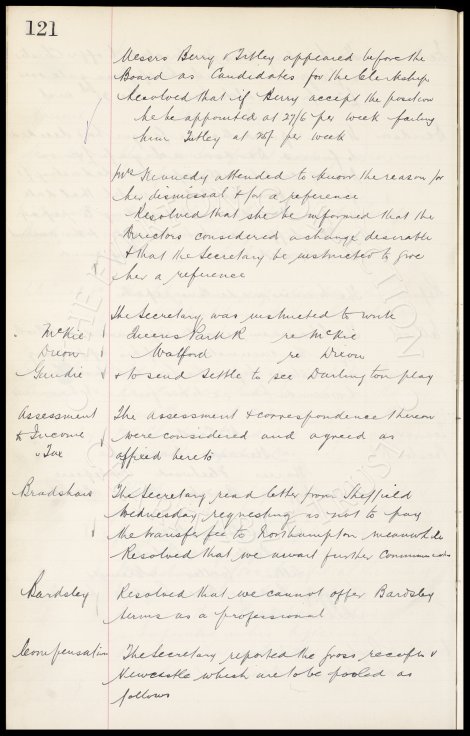 121
Messrs Berry & Titley appeared before the
Board as Candidates for the Clerkship
Resolved that if Berry accept the position
he be appointed at 27/6 per week failing
him Titley at 20/- per week
Mrs Kennedy attended to know the reason for
her dismissal & for a reference
Resolved that she be informed that the
Directors considered a change desirable
& that the Secretary be instructed to give
her a reference
The Secretary was instructed to write
McKie Queens Park R re McKie
Dixon Watford re Dixon
& to send Settle to see Darlington play
Assessment The assessment & correspondence thereon
& Income were considered and agreed as
Tax affixed hereto
Bradshaw The Secretary read letter from Sheffield
Wednesday requesting us not to pay
the transfer fee to Northampton meanwhile
Resolved that we await further communication
Bardsley Resolved that we cannot offer Bardsley
terms as a professional
Compensation The Secretary reported the gross receipts v
Newcastle which are to be pooled as
follows